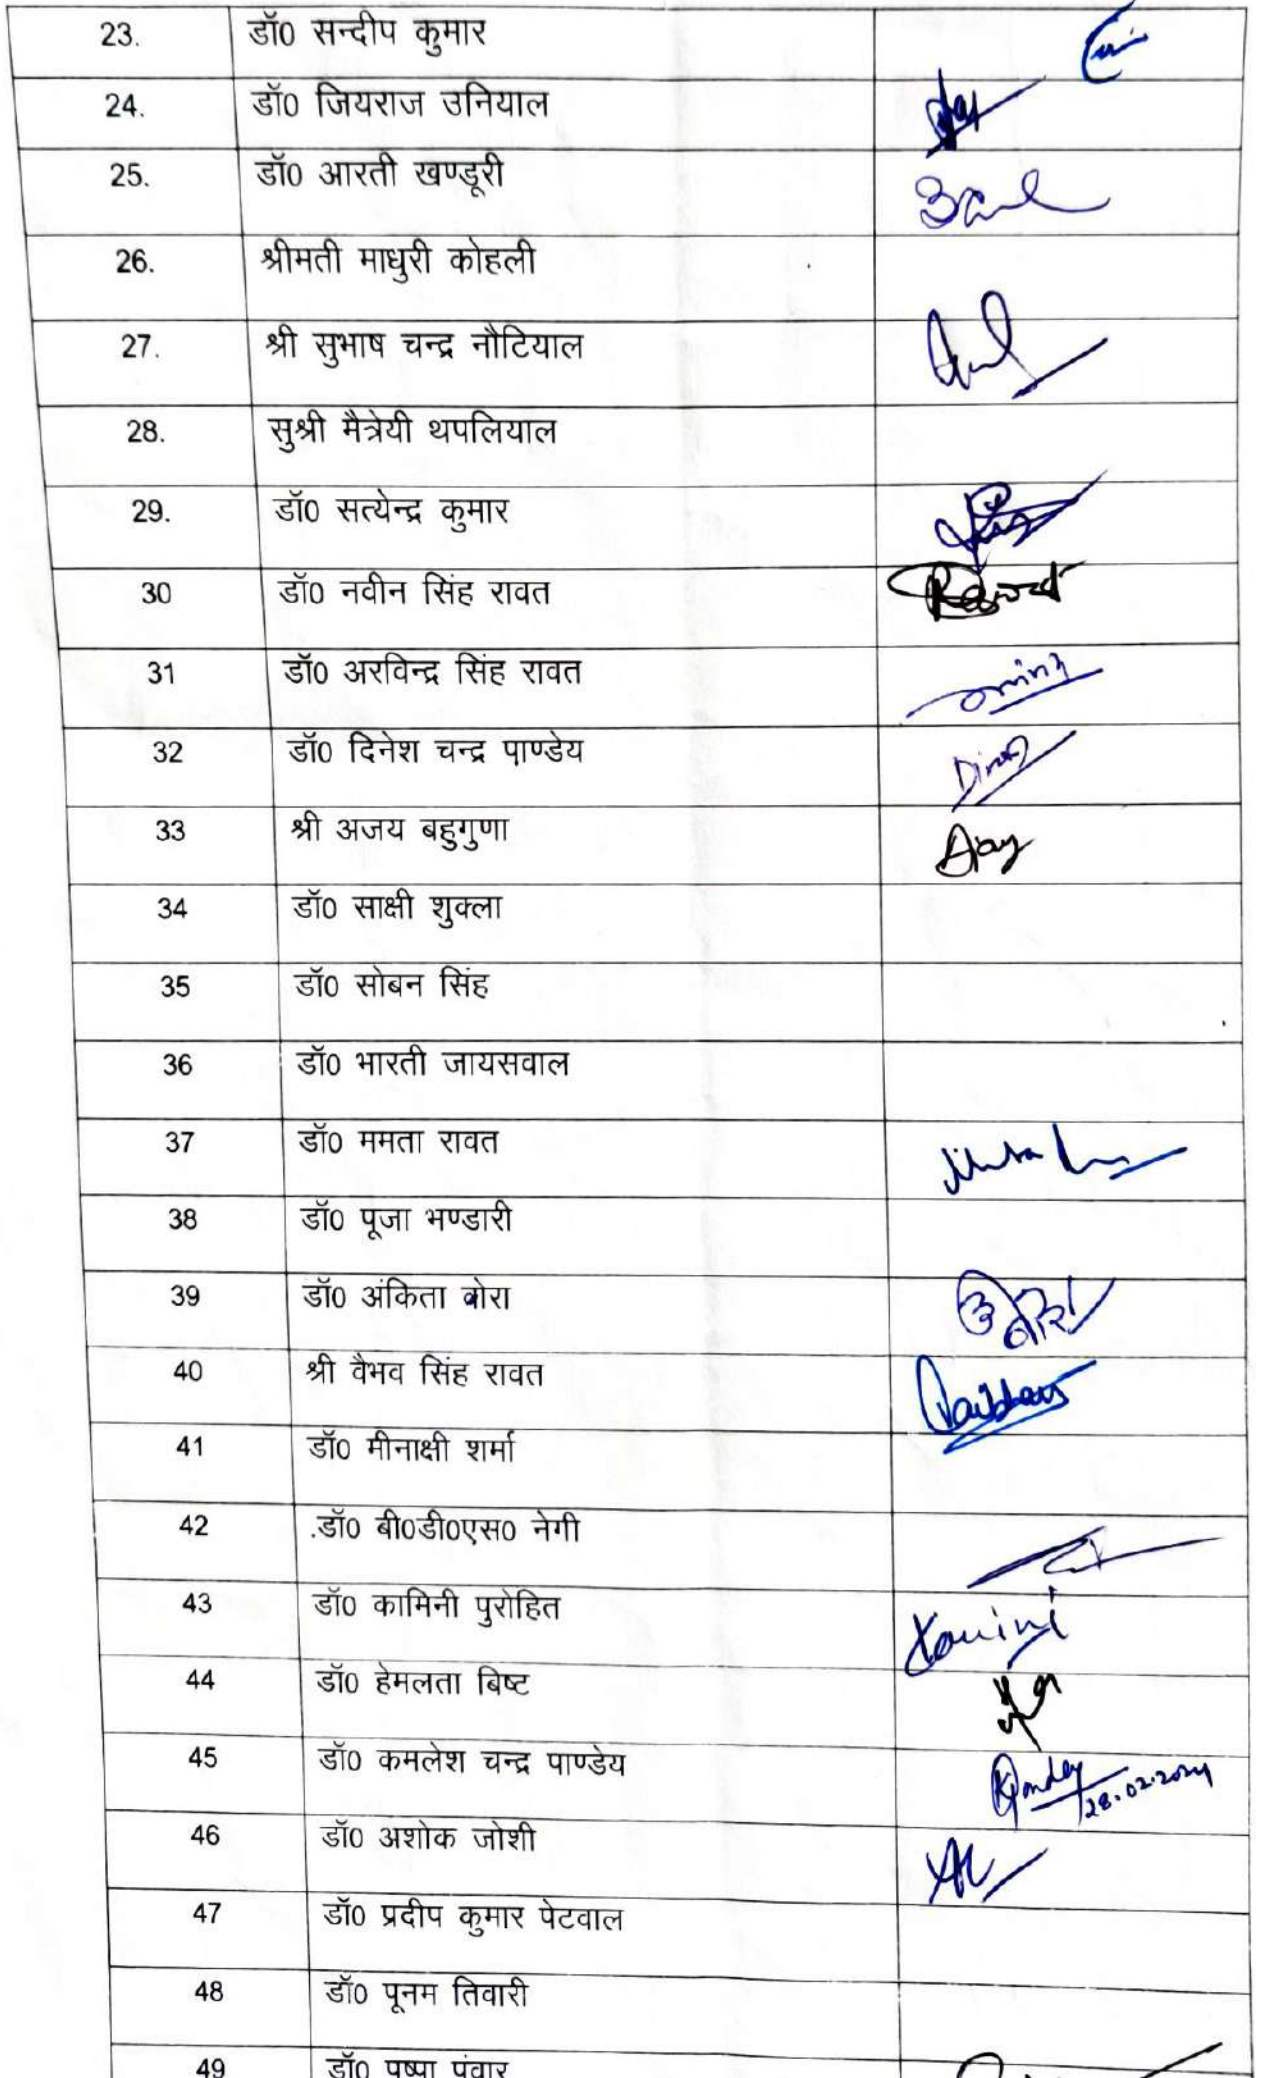 23. डॉ0 सन्दीप कुमार
24. डॉ0 जियराज उनियाल
25. डॉ0 आरती खण्डूरी
26. श्रीमती माधुरी कोहली
27. श्री सुभाष चन्द्र नौटियाल
28. सुश्री मैत्रेयी थपलियाल
29. डॉ0 सत्येन्द्र कुमार
30 डॉ0 नवीन सिंह रावत Rawat
31 डॉ0 अरविन्द्र सिंह रावत
32 डॉ0 दिनेश चन्द्र पाण्डेय
33 श्री अजय बहुगुणा Ajay
34 डॉ0 साक्षी शुक्ला
35 डॉ0 सोबन सिंह
36 डॉ0 भारती जायसवाल
37 डॉ0 ममता रावत
38 डॉ0 पूजा भण्डारी
39 डॉ0 अंकिता बोरा
40 श्री वैभव सिंह रावत Vaibhav
41 डॉ0 मीनाक्षी शर्मा
42 .डॉ0 बी0डी0एस0 नेगी
43 डॉ0 कामिनी पुरोहित Kamini
44 डॉ0 हेमलता बिष्ट
45 डॉ0 कमलेश चन्द्र पाण्डेय 28.02.2024
46 डॉ0 अशोक जोशी
47 डॉ0 प्रदीप कुमार पेटवाल
48 डॉ0 पूनम तिवारी
49 डॉ0 पुष्पा पंवार